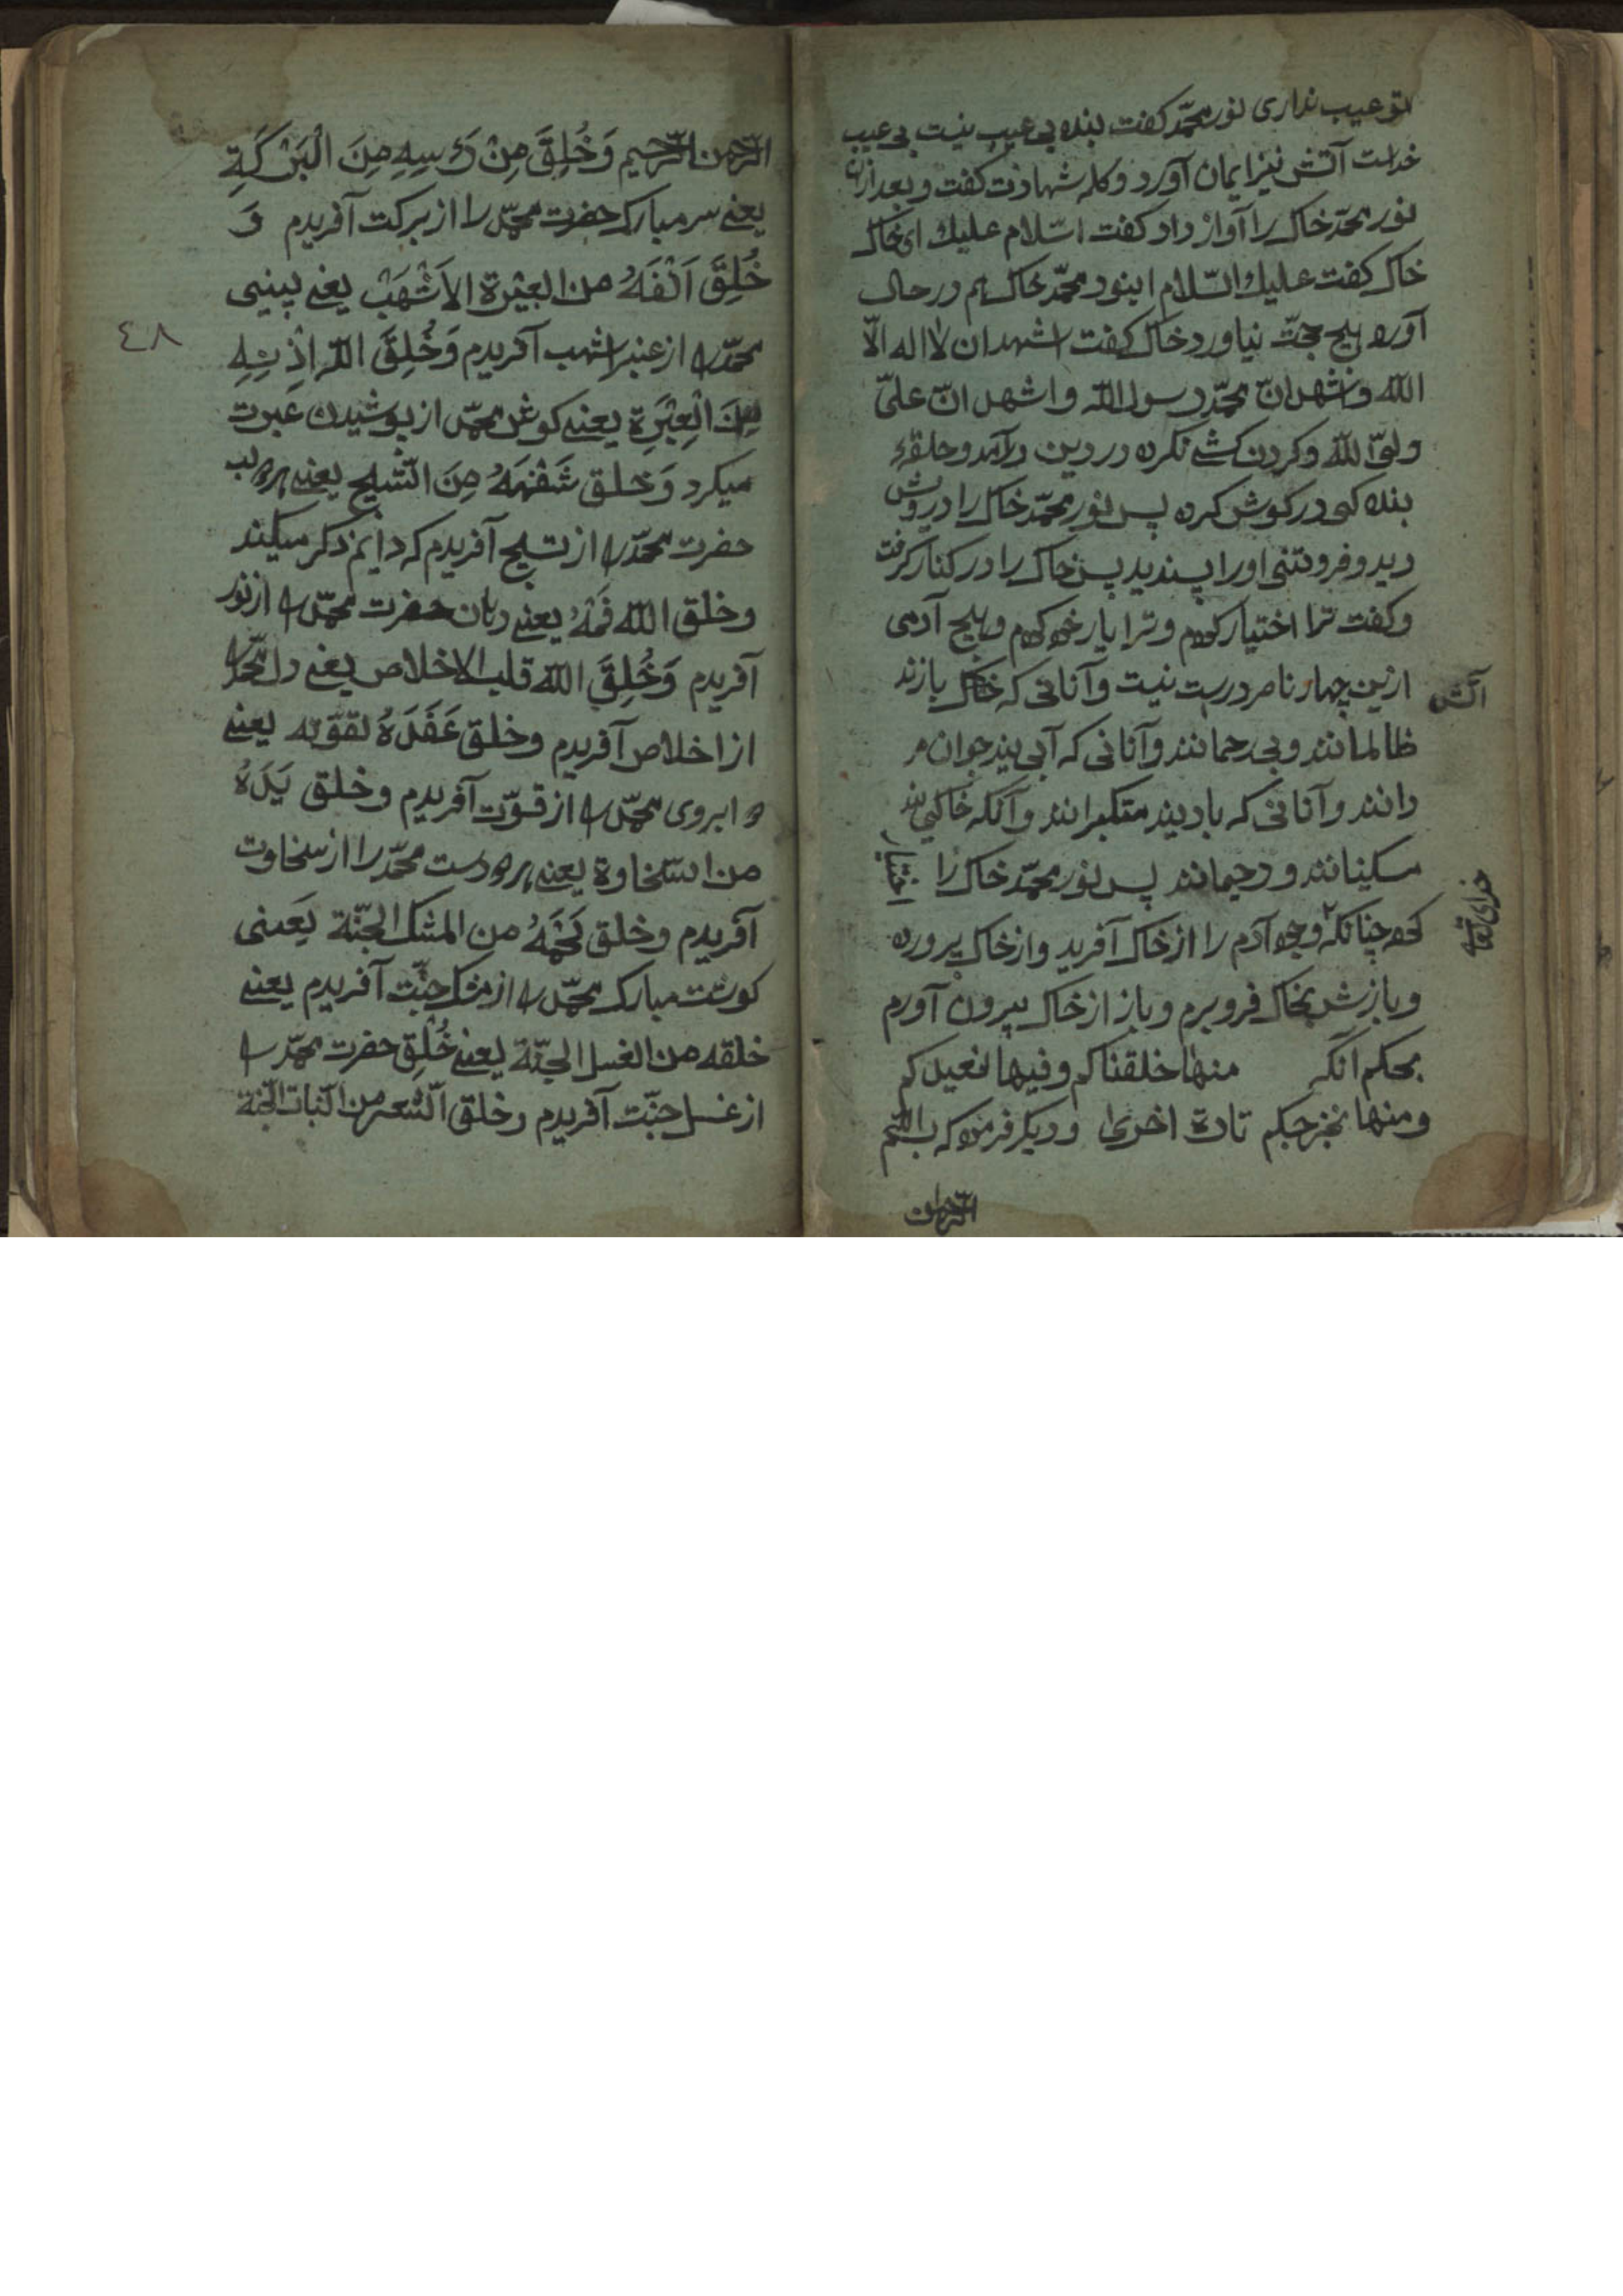 تو عیب نداری نور محمّد کفت بنده بی عیب نیست بی عیب
خداست آتش نیز ایمان آورد و کلمه شهادت کفت و بعد ازان
نور محمّد خاک را آواز داد کفت السّلام علیك ای خاک
خاک کفت علیك السّلام ای نور محمّد خاک هم در حال
آورد هیچ حجّت نیاورد خاک کفت اشهد ان لا اله الّا
اللّه و اشهد انّ محمّد رسول اللّه و اشهد انّ علیّ
ولیّ اللّه و کردن کشے نکرد در دین درآمد و حلقهٔ
بنده کی در کوش کرد پس نور محمّد خاک را درویش
دید و فروتنی او را پسندید پس خاک را در کنار کرفت
و کفت ترا اختیار کردم و ترا یار خود کردم و هیچ آدمی
ازین چهار ناصر درست نیست و آنانی که خاک بازند
آتش
ظالمانند و بی رحمانند و آنانی که آبی یند جوان مر
دانند و آنانی که بادیند متکبرانند و آنکه خاکی یند
مسکینانند و رحیمانند پس نور محمّد خاک را
کرد چنانکه وجود آدم را از خاک آفرید و از خاک پرورد
خدای تعالی
و بازش بخاک فرو برم و باز از خاک بیرون آورم
بحکم آنکه منها خلقناکم و فیها نعیدکم
و منها نخرجکم تارة اخری و دیکر فرمود که بسم اللّه
الرّحمن
الرّحمن الرّحیم وَخُلِقَ مِنْ رَٔسِهِ مِنَ الْبَرْکَةِ
یعنے سر مبارک حضرت محمّد را از برکت آفریدم وَ
خُلِقَ اَنْفَهُ من العِنْبَرة الاَشْهَبْ یعنے بینی
٤٨
محمّد را از عنبر اشهب آفریدم وَخُلِقَ اللّه اِذْنِهِ
مِنَ الْعِبْرَة یعنے کوش محمّد از پوشیدن عبرت
میکرد وَخلق شَفْتَهُ مِنَ التّسْبیح یعنے هر دو لب
حضرت محمّد را از تسبیح آفریدم که دایم ذکر میکند
وخلق اللّه فَمْهُ یعنے دهان حضرت محمّد را از نور
آفریدم وَخُلِقَ اللّه قلب الاخلاص یعنے دل محمّد را
از اخلاص آفریدم وخلق عَضَدَهُ لقوّته یعنے
دو ابروی محمّد را از قوّت آفریدم وخلق یَدَهُ
من السّخاوة یعنے هر دو دست محمّد را از سخاوت
آفریدم وخلق لَحْمَهُ من المشک الجنّة یَعنی
کوشت مبارک محمّد را از مشک جنّت آفریدم یعنے
خلقه من العسل الجنّة یعنے خُلْق حضرت محمّد را
از عسل جنّت آفریدم وخلق الشّعر من النّبات الجنّة